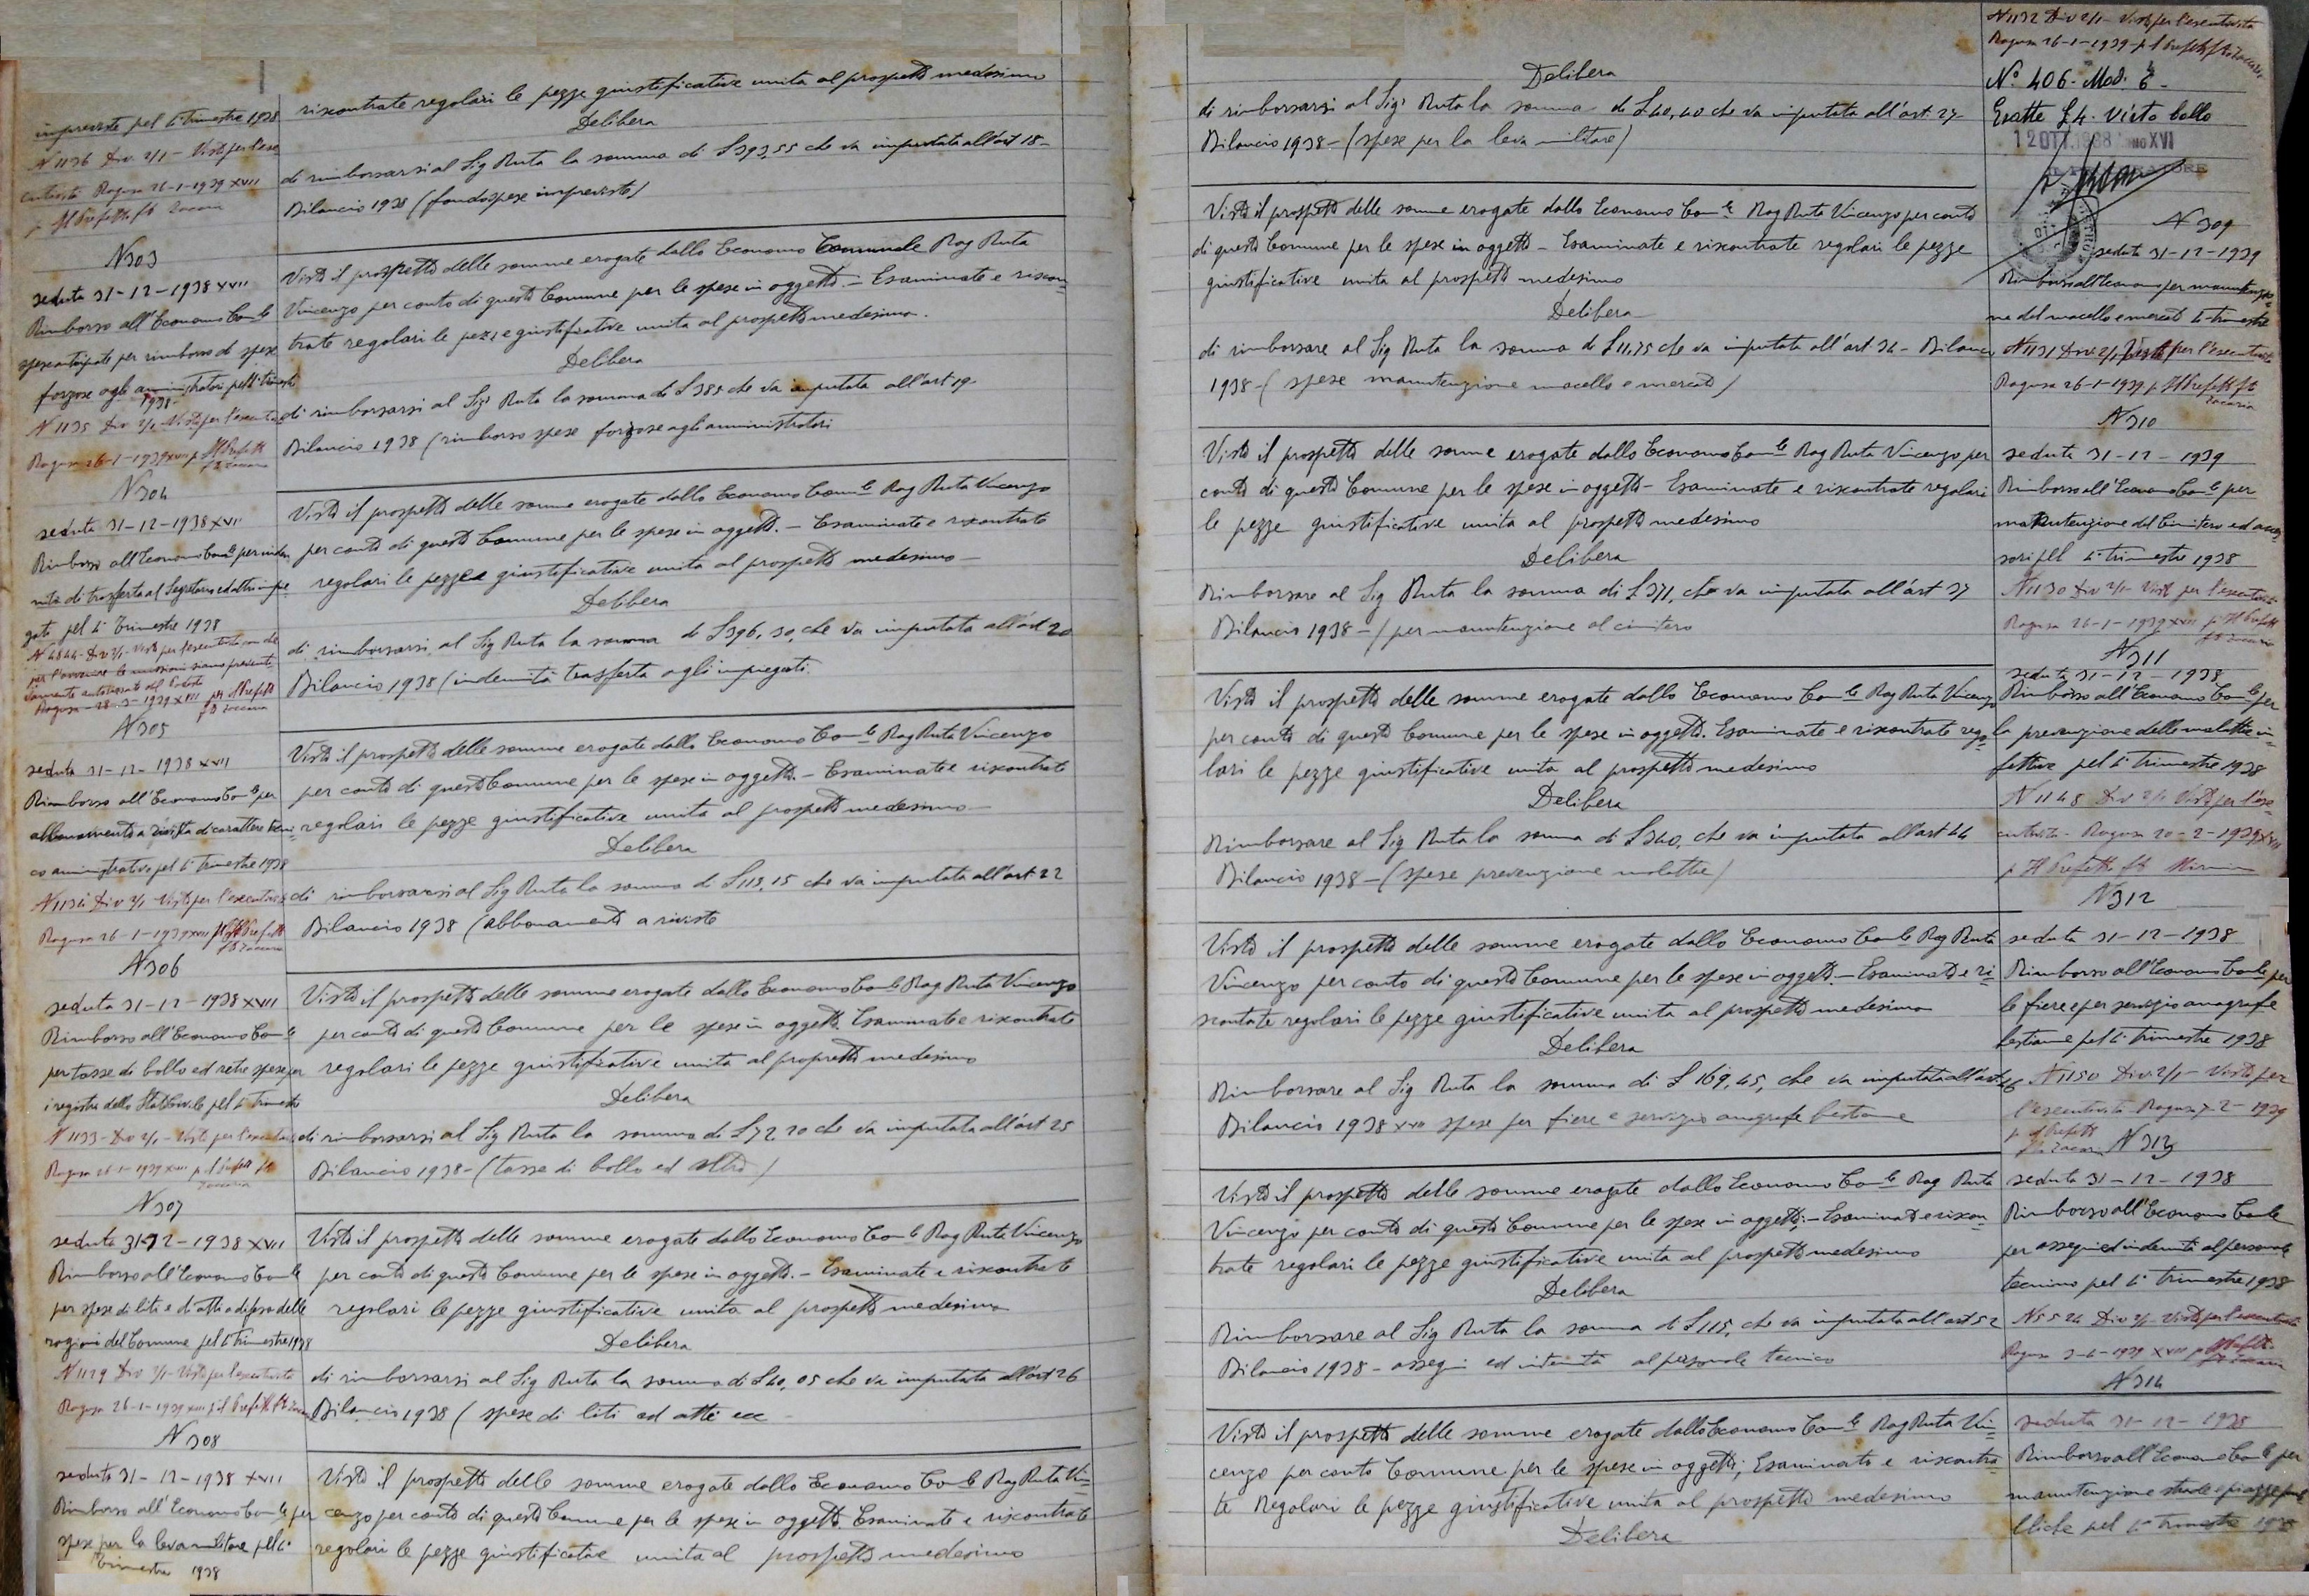 impreviste pel 4° trimestre 1938
N 1136 Div 2/1 - Visto per l'ese
cutività Ragusa 26-1-1939 XVII
p Il Prefetto f.to Zacaria
riscontrate regolari le pezze giustificative unita al prospetto medesimo
Delibera
di rimborsarsi al Sig Ruta la somma di £ 393,55 che va imputata all'art 18-
Bilancio 1938 (fondo spese impreviste)
N 303
seduta 31-12-1938 XVII
Rimborso all'Economo Com.le
spese anticipate per rimborso di spese
forzose agli amministratori pel 4° trimestre
1938-
N 1135 Div 2/1 - Visto per l'esecutività
Ragusa 26-1-1939 XVII p Il Prefetto
f.to Zacaria
Visto il prospetto delle somme erogate dallo Economo Comunale Rag Ruta
Vincenzo per conto di questo Comune per le spese in oggetto. - Esaminate e riscon=
trate regolari le pezze giustificative unita al prospetto medesimo.
Delibera
di rimborsarsi al Sig Ruta la somma di £ 385 che va imputata all'art 19-
Bilancio 1938 (rimborso spese forzose agli amministratori
N 304
seduta 31-12-1938 XVII
Rimborso all'Economo Com.le per inden
nità di trasferta al Segretario ed altri impie
gati pel 4° trimestre 1938
N 4844 - Div 2/1 - Visto per l'esecutività con che
per l'avvenire le missioni siano preventi
vamente autorizzate dal Podestà
Ragusa - 28-3-1939 XVII per Il Prefetto
f.to Zacaria
Visto il prospetto delle somme erogate dallo Economo Com.le Rag Ruta Vincenzo
per conto di questo Comune per le spese in oggetto. - Esaminate e riscontrate
regolari le pezze giustificative unita al prospetto medesimo
Delibera
di rimborsarsi al Sig Ruta la somma di £ 396,30, che va imputata all'art 20
Bilancio 1938 (indennità trasferta agli impiegati.
N 305
seduta 31-12-1938 XVII
Rimborso all'Economo Com.le per
abbonamento a rivista di carattere tecni
co amministrativo pel 4° trimestre 1938
N 1134 Div 2/1 - Visto per l'esecutività
Ragusa 26-1-1939 XVII p Il Prefetto
f.to Zacaria
Visto il prospetto delle somme erogate dallo Economo Com.le Rag Ruta Vincenzo
per conto di questo Comune per le spese in oggetto. - Esaminate e riscontrate
regolari le pezze giustificative unita al prospetto medesimo
Delibera
di rimborsarsi al Sig Ruta la somma di £ 113,15 che va imputata all'art 22
Bilancio 1938 (abbonamento a riviste
N 306
seduta 31-12-1938 XVII
Rimborso all'Economo Com.le
per tasse di bollo ed altre spese per
i registri dello Stato Civile pel 4° trimestre
N 1133 - Div 2/1 - Visto per l'esecutività
Ragusa 26-1-1939 XVII p Il Prefetto f.to
Zacaria
Visto il prospetto delle somme erogate dallo Economo Com.le Rag Ruta Vincenzo
per conto di questo Comune per le spese in oggetto Esaminate e riscontrate
regolari le pezze giustificative unita al prospetto medesimo
Delibera
di rimborsarsi al Sig Ruta la somma di £ 72,20 che va imputata all'art 25
Bilancio 1938 - (tasse di bollo ed altro)
N 307
seduta 31-12-1938 XVII
Rimborso all'Economo Com.le
per spese di liti e d'atti a difesa delle
ragioni del Comune pel 4° trimestre 1938
N 1129 Div 2/1 - Visto per l'esecutività
Ragusa 26-1-1939 XVII p il Prefetto f.to Zacaria
Visto il prospetto delle somme erogate dallo Economo Com.le Rag Ruta Vincenzo
per conto di questo Comune per le spese in oggetto. - Esaminate e riscontrate
regolari le pezze giustificative unita al prospetto medesimo
Delibera
di rimborsarsi al Sig Ruta la somma di £ 40,05 che va imputata all'art 26
Bilancio 1938 (spese di liti ed atti ecc -
N 308
seduta 31-12-1938 XVII
Rimborso all'Economo Com.le per
spese per la leva militare pel 4°
trimestre 1938
Visto il prospetto delle somme erogate dallo Economo Com.le Rag Ruta Vin=
cenzo per conto di questo Comune per le spese in oggetto. Esaminate e riscontrate
regolari le pezze giustificative unita al prospetto medesimo
N 1132 Div 2/1 - Visto per l'esecutività
Ragusa 26-1-1939 - p Il Prefetto f.to Zacaria
N° 406 - Mod. 6 -
Esatte £ 4. Visto bollo
12 OTT. 1938 ANNO XVI
Delibera
di rimborsarsi al Sig. Ruta la somma di £ 40,40 che va imputata all'art. 27-
Bilancio 1938 - (spese per la leva militare)
N 309
seduta 31-12-1939
Rimborso all'Economo per manutenzio=
ne del macello e mercato 4° trimestre
N 1131 Div 2/1 Visto per l'esecutività
Ragusa 26-1-1939 p Il Prefetto f.to
Zacaria
Visto il prospetto delle somme erogate dallo Economo Com.le Rag Ruta Vincenzo per conto
di questo Comune per le spese in oggetto - Esaminate e riscontrate regolari le pezze
giustificative unita al prospetto medesimo
Delibera
di rimborsare al Sig Ruta la somma di £ 11,75 che va imputata all'art 34 - Bilancio
1938 - (spese manutenzione macello e mercato)
N 310
seduta 31-12-1939
Rimborso all'Economo Com.le per
manutenzione del Cimitero ed acces
sori pel 4° trimestre 1938
N 1130 Div 2/1 - Visto per l'esecutività
Ragusa 26-1-1939 XVII p Il Prefetto
f.to Zacaria
Visto il prospetto delle somme erogate dallo Economo Com.le Rag Ruta Vincenzo per
conto di questo Comune per le spese in oggetto - Esaminate e riscontrate regolari
le pezze giustificative unita al prospetto medesimo
Delibera
Rimborsare al Sig Ruta la somma di £ 371, che va imputata all'art 37
Bilancio 1938 - (per manutenzione al cimitero
N 311
seduta 31-12-1938
Rimborso all'Economo Com.le per
la prevenzione delle malattie in=
fettive pel 4° trimestre 1938
N 1148 Div 2/1 Visto per l'ese
cutività - Ragusa 20-2-1939 XVII
p Il Prefetto f.to
Visto il prospetto delle somme erogate dallo Economo Com.le Rag Ruta Vincenzo
per conto di questo Comune per le spese in oggetto. Esaminate e riscontrate rego=
lari le pezze giustificative unita al prospetto medesimo
Delibera
Rimborsare al Sig Ruta la somma di £ 340, che va imputata all'art 44
Bilancio 1938 - (spese prevenzione malattie)
N 312
seduta 31-12-1938
Rimborso all'Economo Com.le per
le fiere e per servizio anagrafe
bestiame pel 4° trimestre 1938
N 1150 Div. 2/1 - Visto per
l'esecutività Ragusa 7-2-1939
p Il Prefetto
f.to Zacaria
Visto il prospetto delle somme erogate dallo Economo Com.le Rag Ruta
Vincenzo per conto di questo Comune per le spese in oggetto. - Esaminate e ri=
scontrate regolari le pezze giustificative unita al prospetto medesimo
Delibera
Rimborsare al Sig Ruta la somma di £ 169,45, che va imputata all'art 46
Bilancio 1938 XVII spese per fiere e servizio anagrafe bestiame
N 313
seduta 31-12-1938
Rimborso all'Economo Com.le
per assegni ed indennità al personale
tecnico pel 4° trimestre 1938
N 5524 Div 2/1 - Visto per l'esecutività
Ragusa 3-4-1939 XVII p Il Prefetto
f.to Zacaria
Visto il prospetto delle somme erogate dallo Economo Com.le Rag Ruta
Vincenzo per conto di questo Comune per le spese in oggetto; - Esaminate e riscon=
trate regolari le pezze giustificative unita al prospetto medesimo
Delibera
Rimborsare al Sig Ruta la somma di £ 115, che va imputata all'art 52
Bilancio 1938 - assegni ed indennità al personale tecnico
N 314
seduta 31-12-1938
Rimborso all'Economo Com.le per
manutenzione strade e piazze pub
bliche pel 4° trimestre 1938
Visto il prospetto delle somme erogate dallo Economo Com.le Rag Ruta Vin=
cenzo per conto Comune per le spese in oggetto; Esaminate e riscontra=
te Regolari le pezze giustificative unita al prospetto medesimo
Delibera